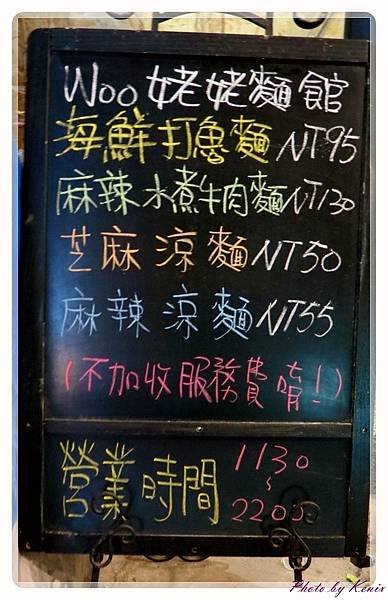 Woo 姥姥麵館
海鮮打魯麵 NT95
麻辣水煮牛肉麵 NT130
芝麻涼麵 NT50
麻辣涼麵 NT55
(不加收服務費唷!)
營業時間 1130
~
2200
Photo by Kenix